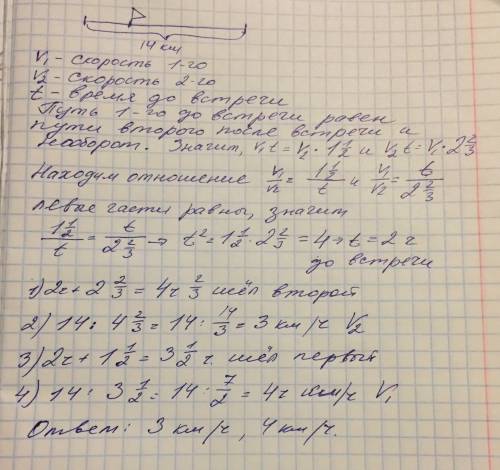 14 км
V₁ - скорость 1-го
V₂ - скорость 2-го
t - время до встречи
Путь 1-го до встречи равен
пути второго после встречи и
наоборот. Значит, V₁t = V₂ · 1 1/2 и V₂t = V₁ · 2 2/3
Находим отношение V₁/V₂ = 1 1/2 / t и V₁/V₂ = t / 2 2/3
левые части равны, значит
1 1/2 / t = t / 2 2/3 → t² = 1 1/2 · 2 2/3 = 4 → t = 2 ч
до встречи
1) 2ч + 2 2/3 = 4ч 2/3 шёл второй
2) 14 : 4 2/3 = 14 : 14/3 = 3 км/ч V₂
3) 2ч + 1 1/2 = 3 1/2 ч. шёл первый
4) 14 : 3 1/2 = 14 : 7/2 = 4ч км/ч V₁
Ответ: 3 км/ч, 4 км/ч.